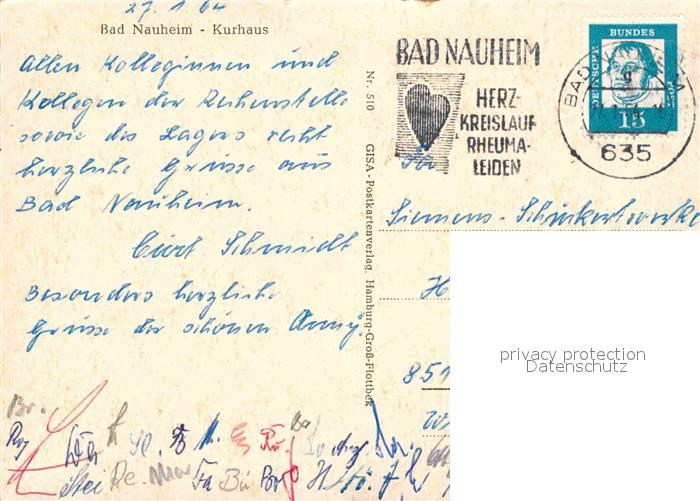 27.1.64
Bad Nauheim - Kurhaus
Allen Kolleginnen und
Kollegen der Rechenstelle
sowie des Lagers recht
herzliche Grüsse aus
Bad Nauheim.
Curt Schmidt
Besonders herzliche
Grüsse der schönen Anny.
Nr. 510 GISA-Postkartenverlag, Hamburg-Groß-Flottbek
BAD NAUHEIM
HERZ-
KREISLAUF
RHEUMA-
LEIDEN
DEUTSCHE BUNDES POST
15
BAD
635
Siemens-Schuckertwerke
H
851
privacy protection
Datenschutz
Br.
Ba
De. Fa Bü